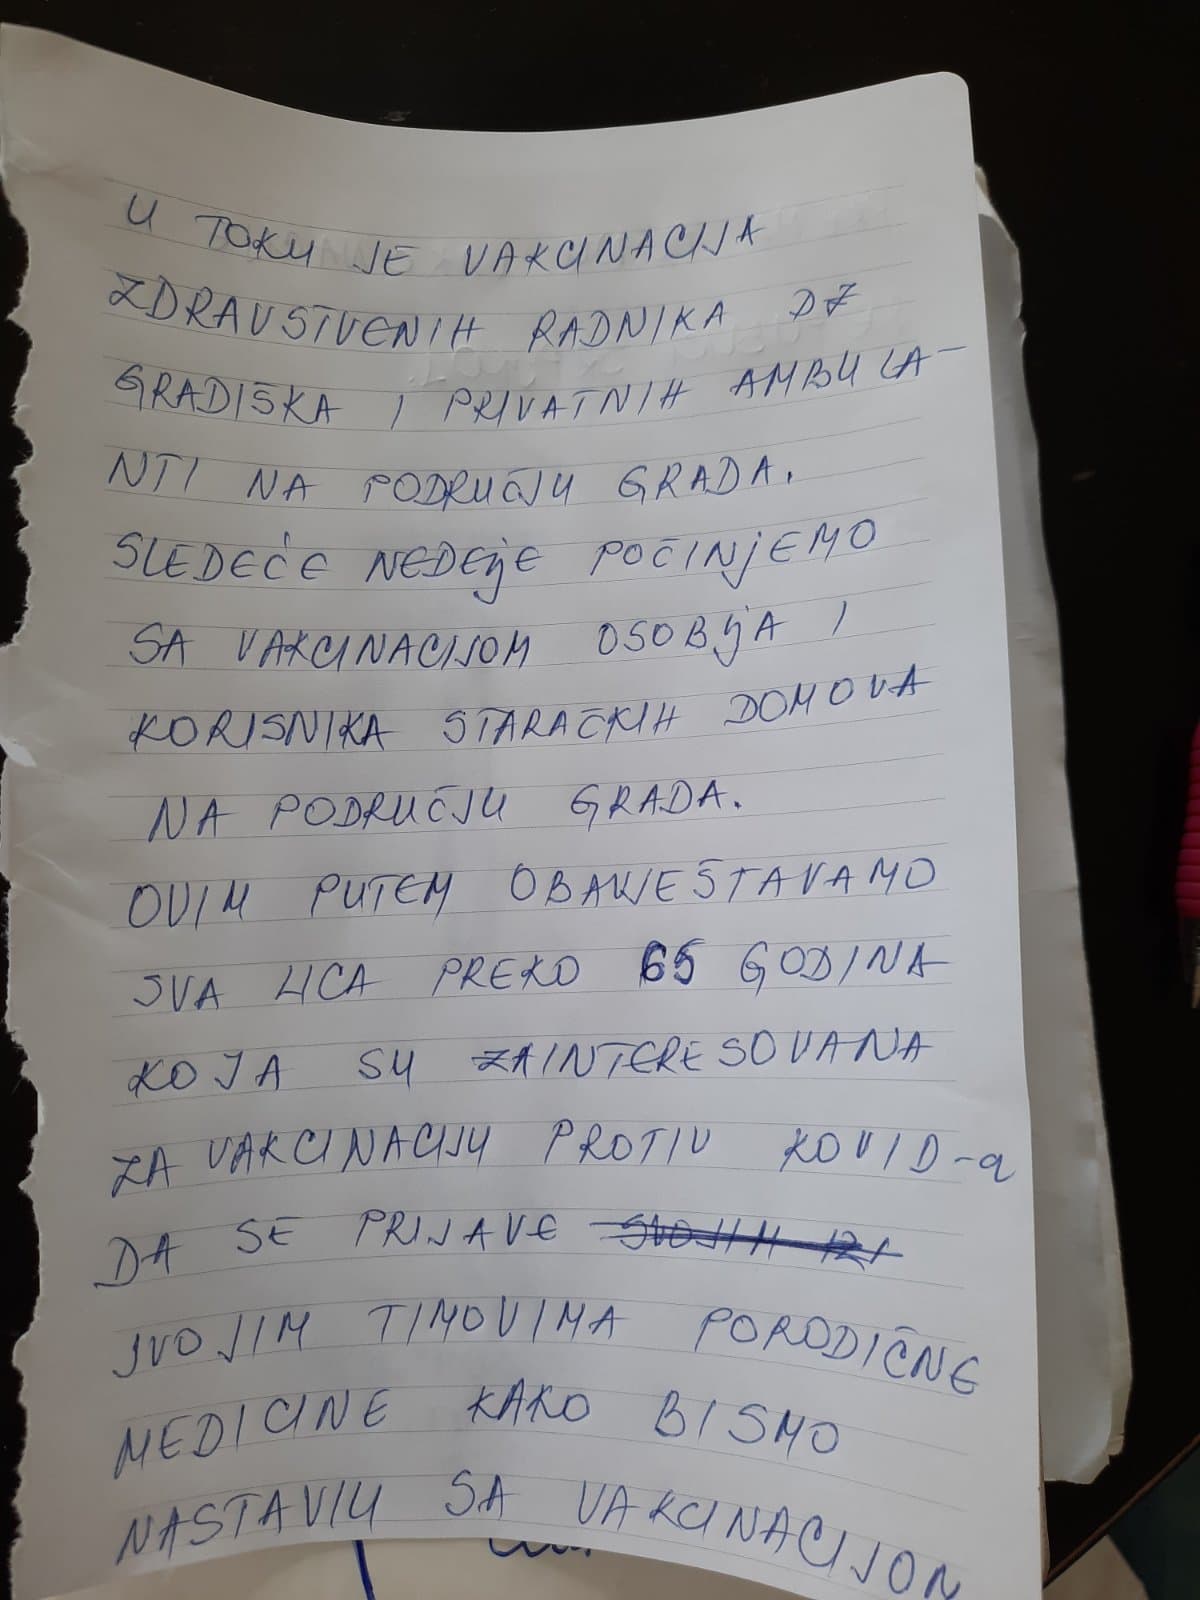 U TOKU JE VAKCINACIJA
ZDRAVSTVENIH RADNIKA DZ
GRADIŠKA I PRIVATNIH AMBULA-
NTI NA PODRUČJU GRADA.
SLEDEĆE NEDELJE POČINJEMO
SA VAKCINACIJOM OSOBLJA I
KORISNIKA STARAČKIH DOMOVA
NA PODRUČJU GRADA.
OVIM PUTEM OBAVJEŠTAVAMO
SVA LICA PREKO 65 GODINA
KOJA SU ZAINTERESOVANA
ZA VAKCINACIJU PROTIV KOVID-a
DA SE PRIJAVE SVOJIM
SVOJIM TIMOVIMA PORODIČNE
MEDICINE KAKO BISMO
NASTAVILI SA VAKCINACIJOM